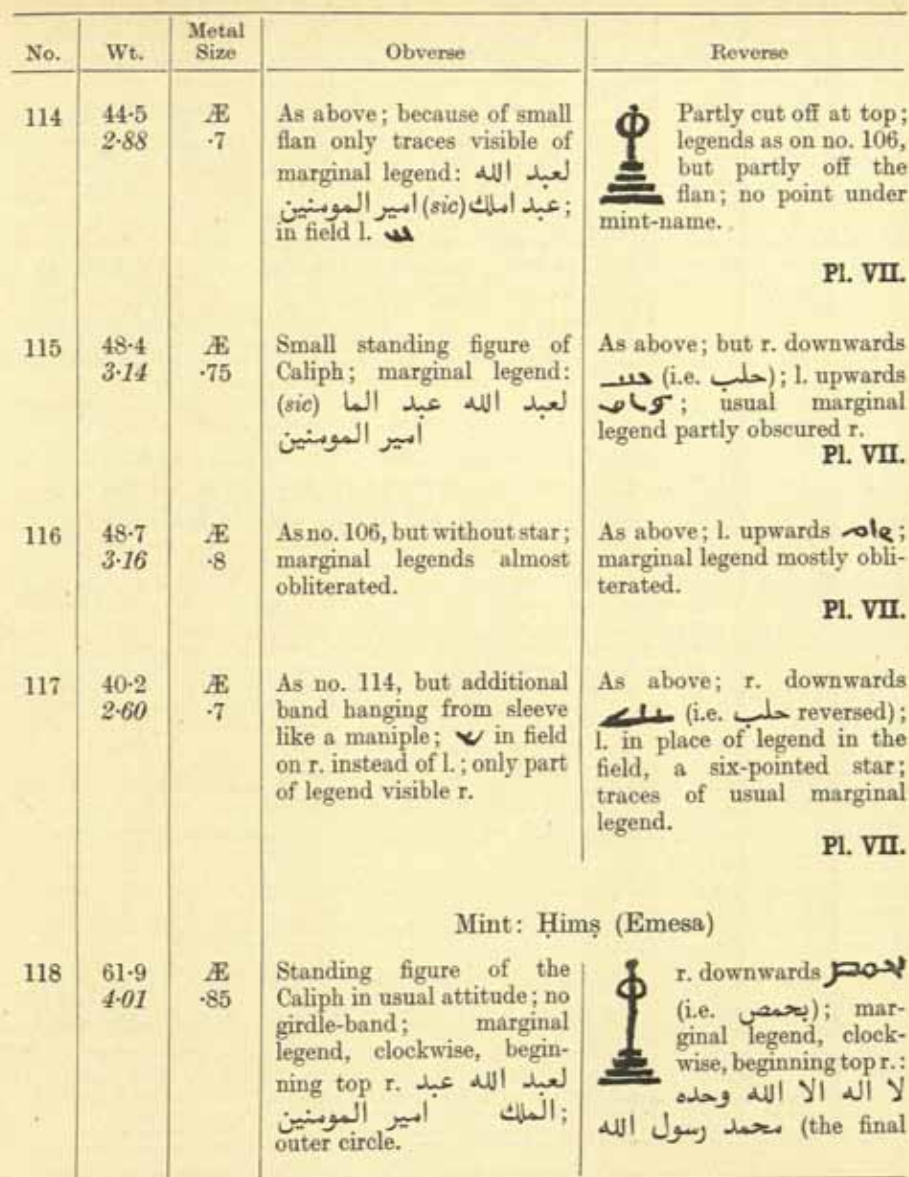 No. Wt. Metal Size Obverse Reverse
114 44·5 2·88 Æ ·7
As above; because of small
flan only traces visible of
marginal legend: لعبد الله
عبد املك (sic) امير المومنين;
in field l.
Partly cut off at top;
legends as on no. 106,
but partly off the
flan; no point under
mint-name.
Pl. VII.
115 48·4 3·14 Æ ·75
Small standing figure of
Caliph; marginal legend:
لعبد الله عبد الما (sic)
امير المومنين
As above; but r. downwards
(i.e. حلب); l. upwards
; usual marginal
legend partly obscured r.
Pl. VII.
116 48·7 3·16 Æ ·8
As no. 106, but without star;
marginal legends almost
obliterated.
As above; l. upwards ;
marginal legend mostly obli-
terated.
Pl. VII.
117 40·2 2·60 Æ ·7
As no. 114, but additional
band hanging from sleeve
like a maniple; in field
on r. instead of l.; only part
of legend visible r.
As above; r. downwards
(i.e. حلب reversed);
l. in place of legend in the
field, a six-pointed star;
traces of usual marginal
legend.
Pl. VII.
Mint: Ḥimṣ (Emesa)
118 61·9 4·01 Æ ·85
Standing figure of the
Caliph in usual attitude; no
girdle-band; marginal
legend, clockwise, begin-
ning top r. لعبد الله عبد
الملك امير المومنين;
outer circle.
r. downwards
(i.e. بحمص); mar-
ginal legend, clock-
wise, beginning top r.:
لا اله الا الله وحده
محمد رسول الله (the final